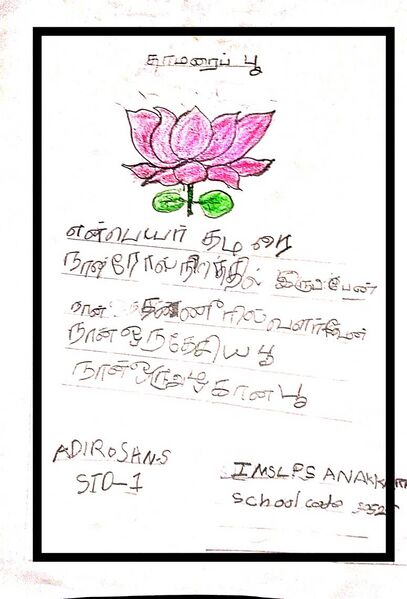 தாமரைப் பூ
என்பெயர் தமரை
நான் ரோஸ் நிறத்தில் இருப்பேன்
நான் தண்ணீரில் வளர்வேன்
நான் ஒரு தேசிய பூ
நான் ஒரு அழகான பூ
ADIROSHAN.S
STD-1
IMSLPS ANAKK
School code